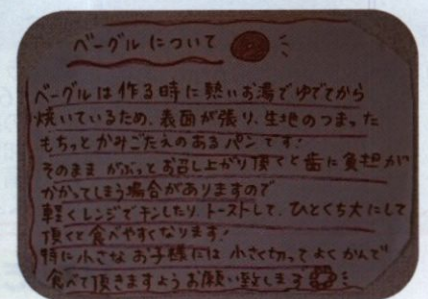 ベーグルについて
ベーグルは作る時に熱いお湯でゆでてから
焼いているため、表面が張り、生地のつまった
もちっとかみごたえのあるパンです!
そのままがぶっとお召し上がり頂くと歯に負担が
かかってしまう場合がありますので
軽くレンジでチンしたり、トーストして、ひとくち大にして
頂くと食べやすくなります!
特に小さなお子様には小さく切ってよくかんで
食べて頂きますようお願い致します